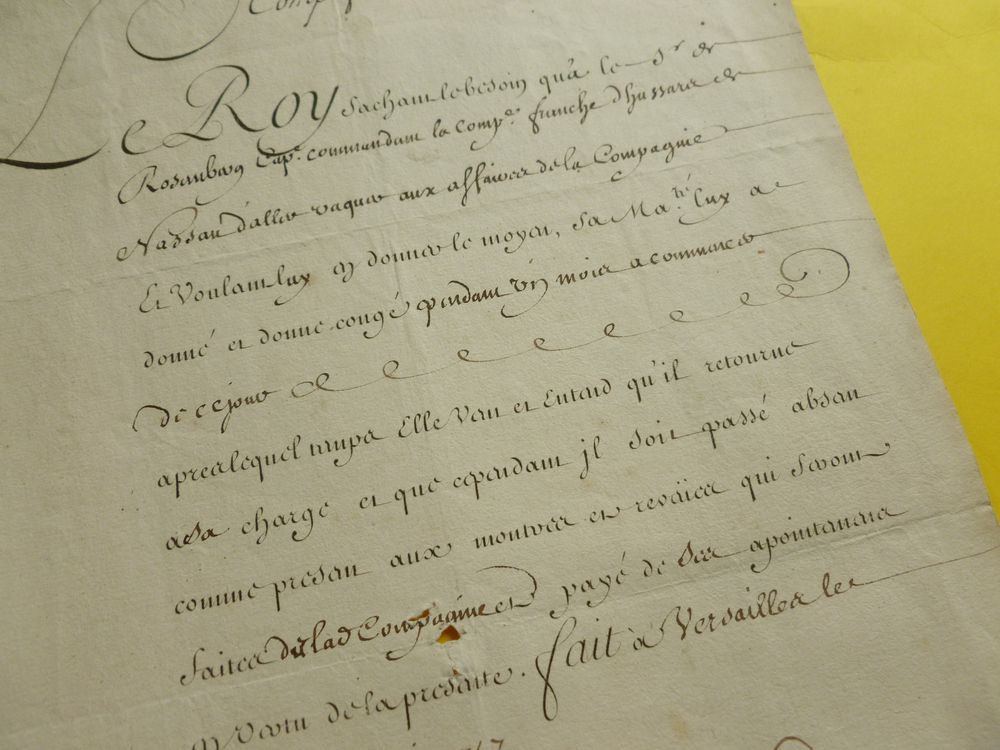 Comp
Le Roy sachant le besoin qu'a le Sr de
Rosamberg Capne. commandant la Compe. franche d'hussars de
Nassau d'aller vaquer aux affaires de la Compagnie
Et Voulant luy en donner le moyen, Sa Maté. luy a
donné et donne congé pendant un mois a commencer
de ce jour
apres lequel temps Elle Veut et Entend qu'il retourne
a sa charge et que cependant jl soit passé absent
comme present aux montres et reveües qui seront
faites de lad Compagnie et payé de ses apointemens
en vertu de la presente. fait a Versailles le